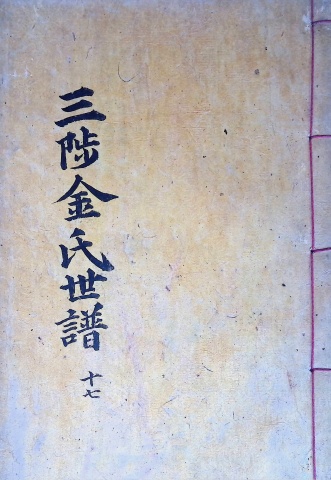 三陟金氏世譜
十七